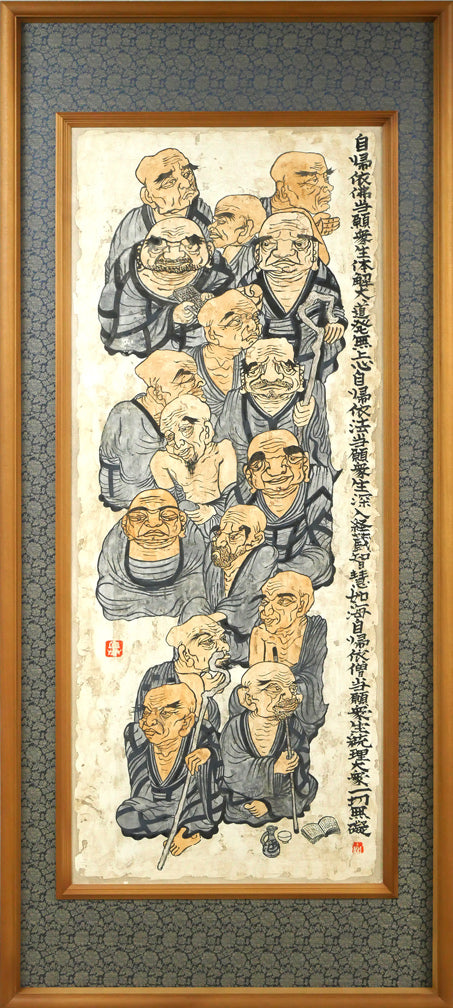 自帰依佛当願衆生体解大道発無上心自帰依法当願衆生深入経蔵智慧如海自帰依僧当願衆生統理大衆一切無礙